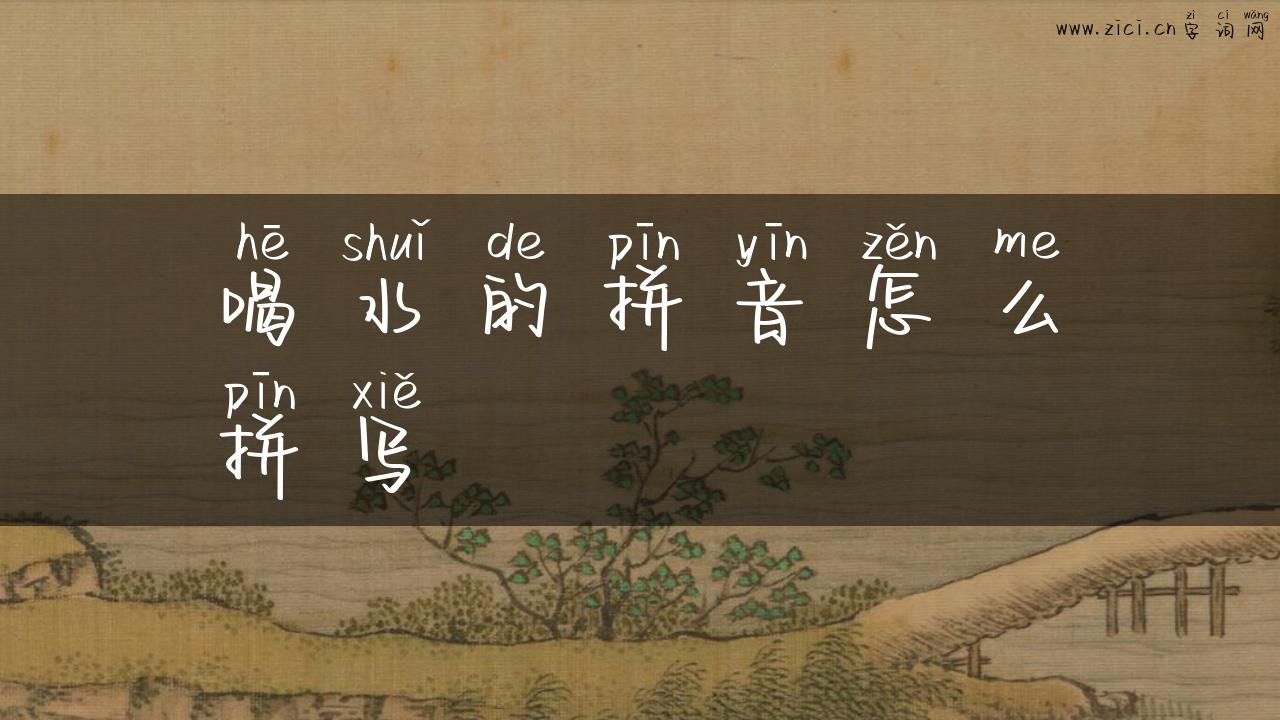 zì cí wǎng
www.zici.cn 字 词 网
hē shuǐ de pīn yīn zěn me
喝 水 的 拼 音 怎 么
pīn xiě
拼 写